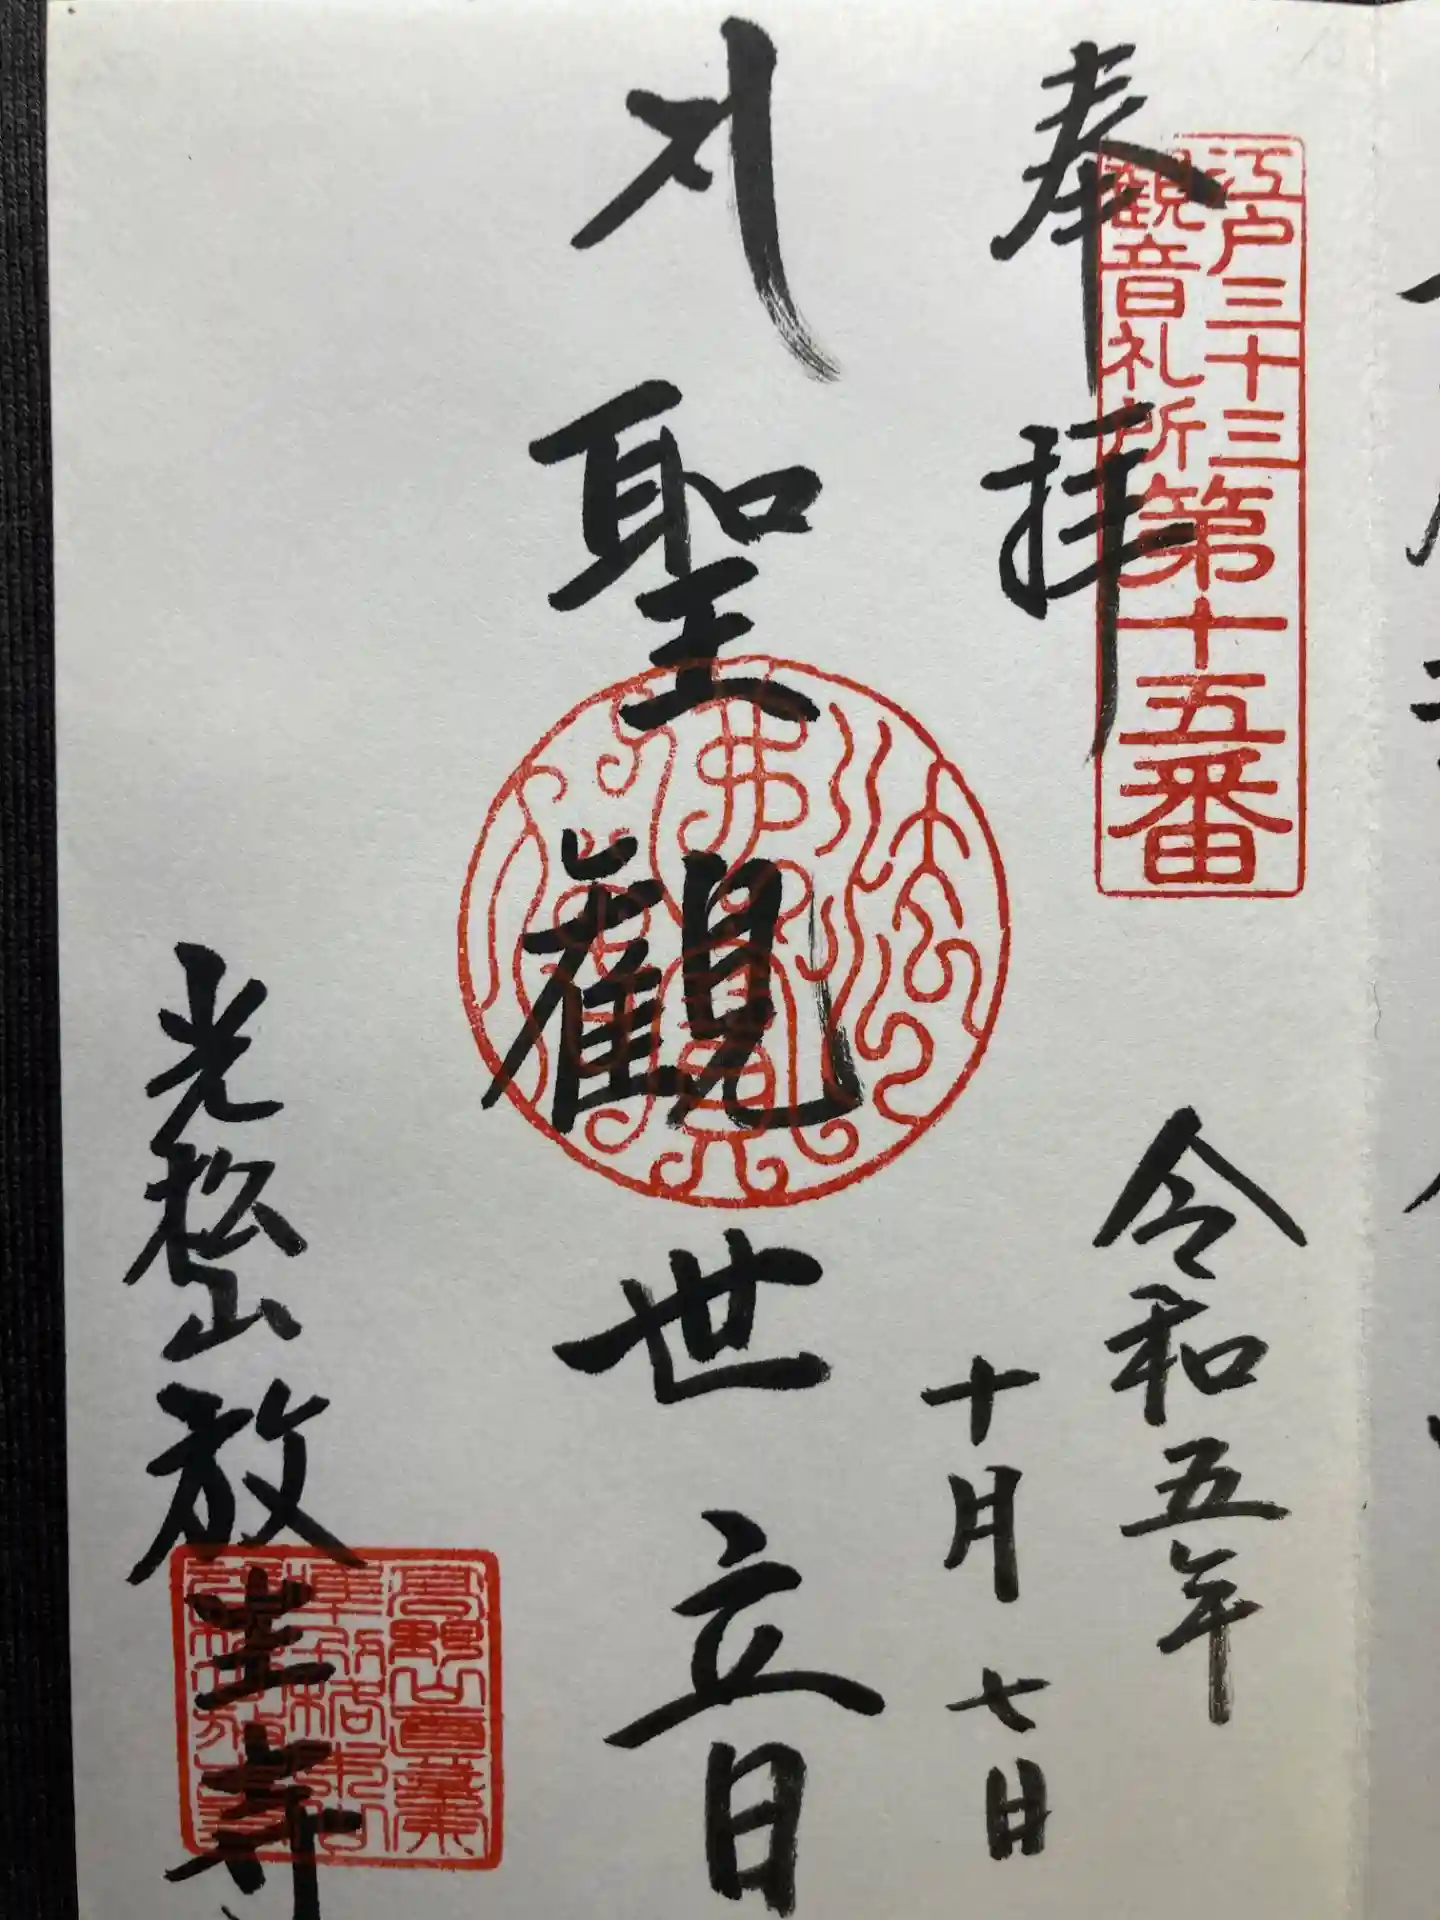 江戸三十三
観音札所
第十五番
奉拝
令和五年
十月七日
聖觀世音
光松山放生寺